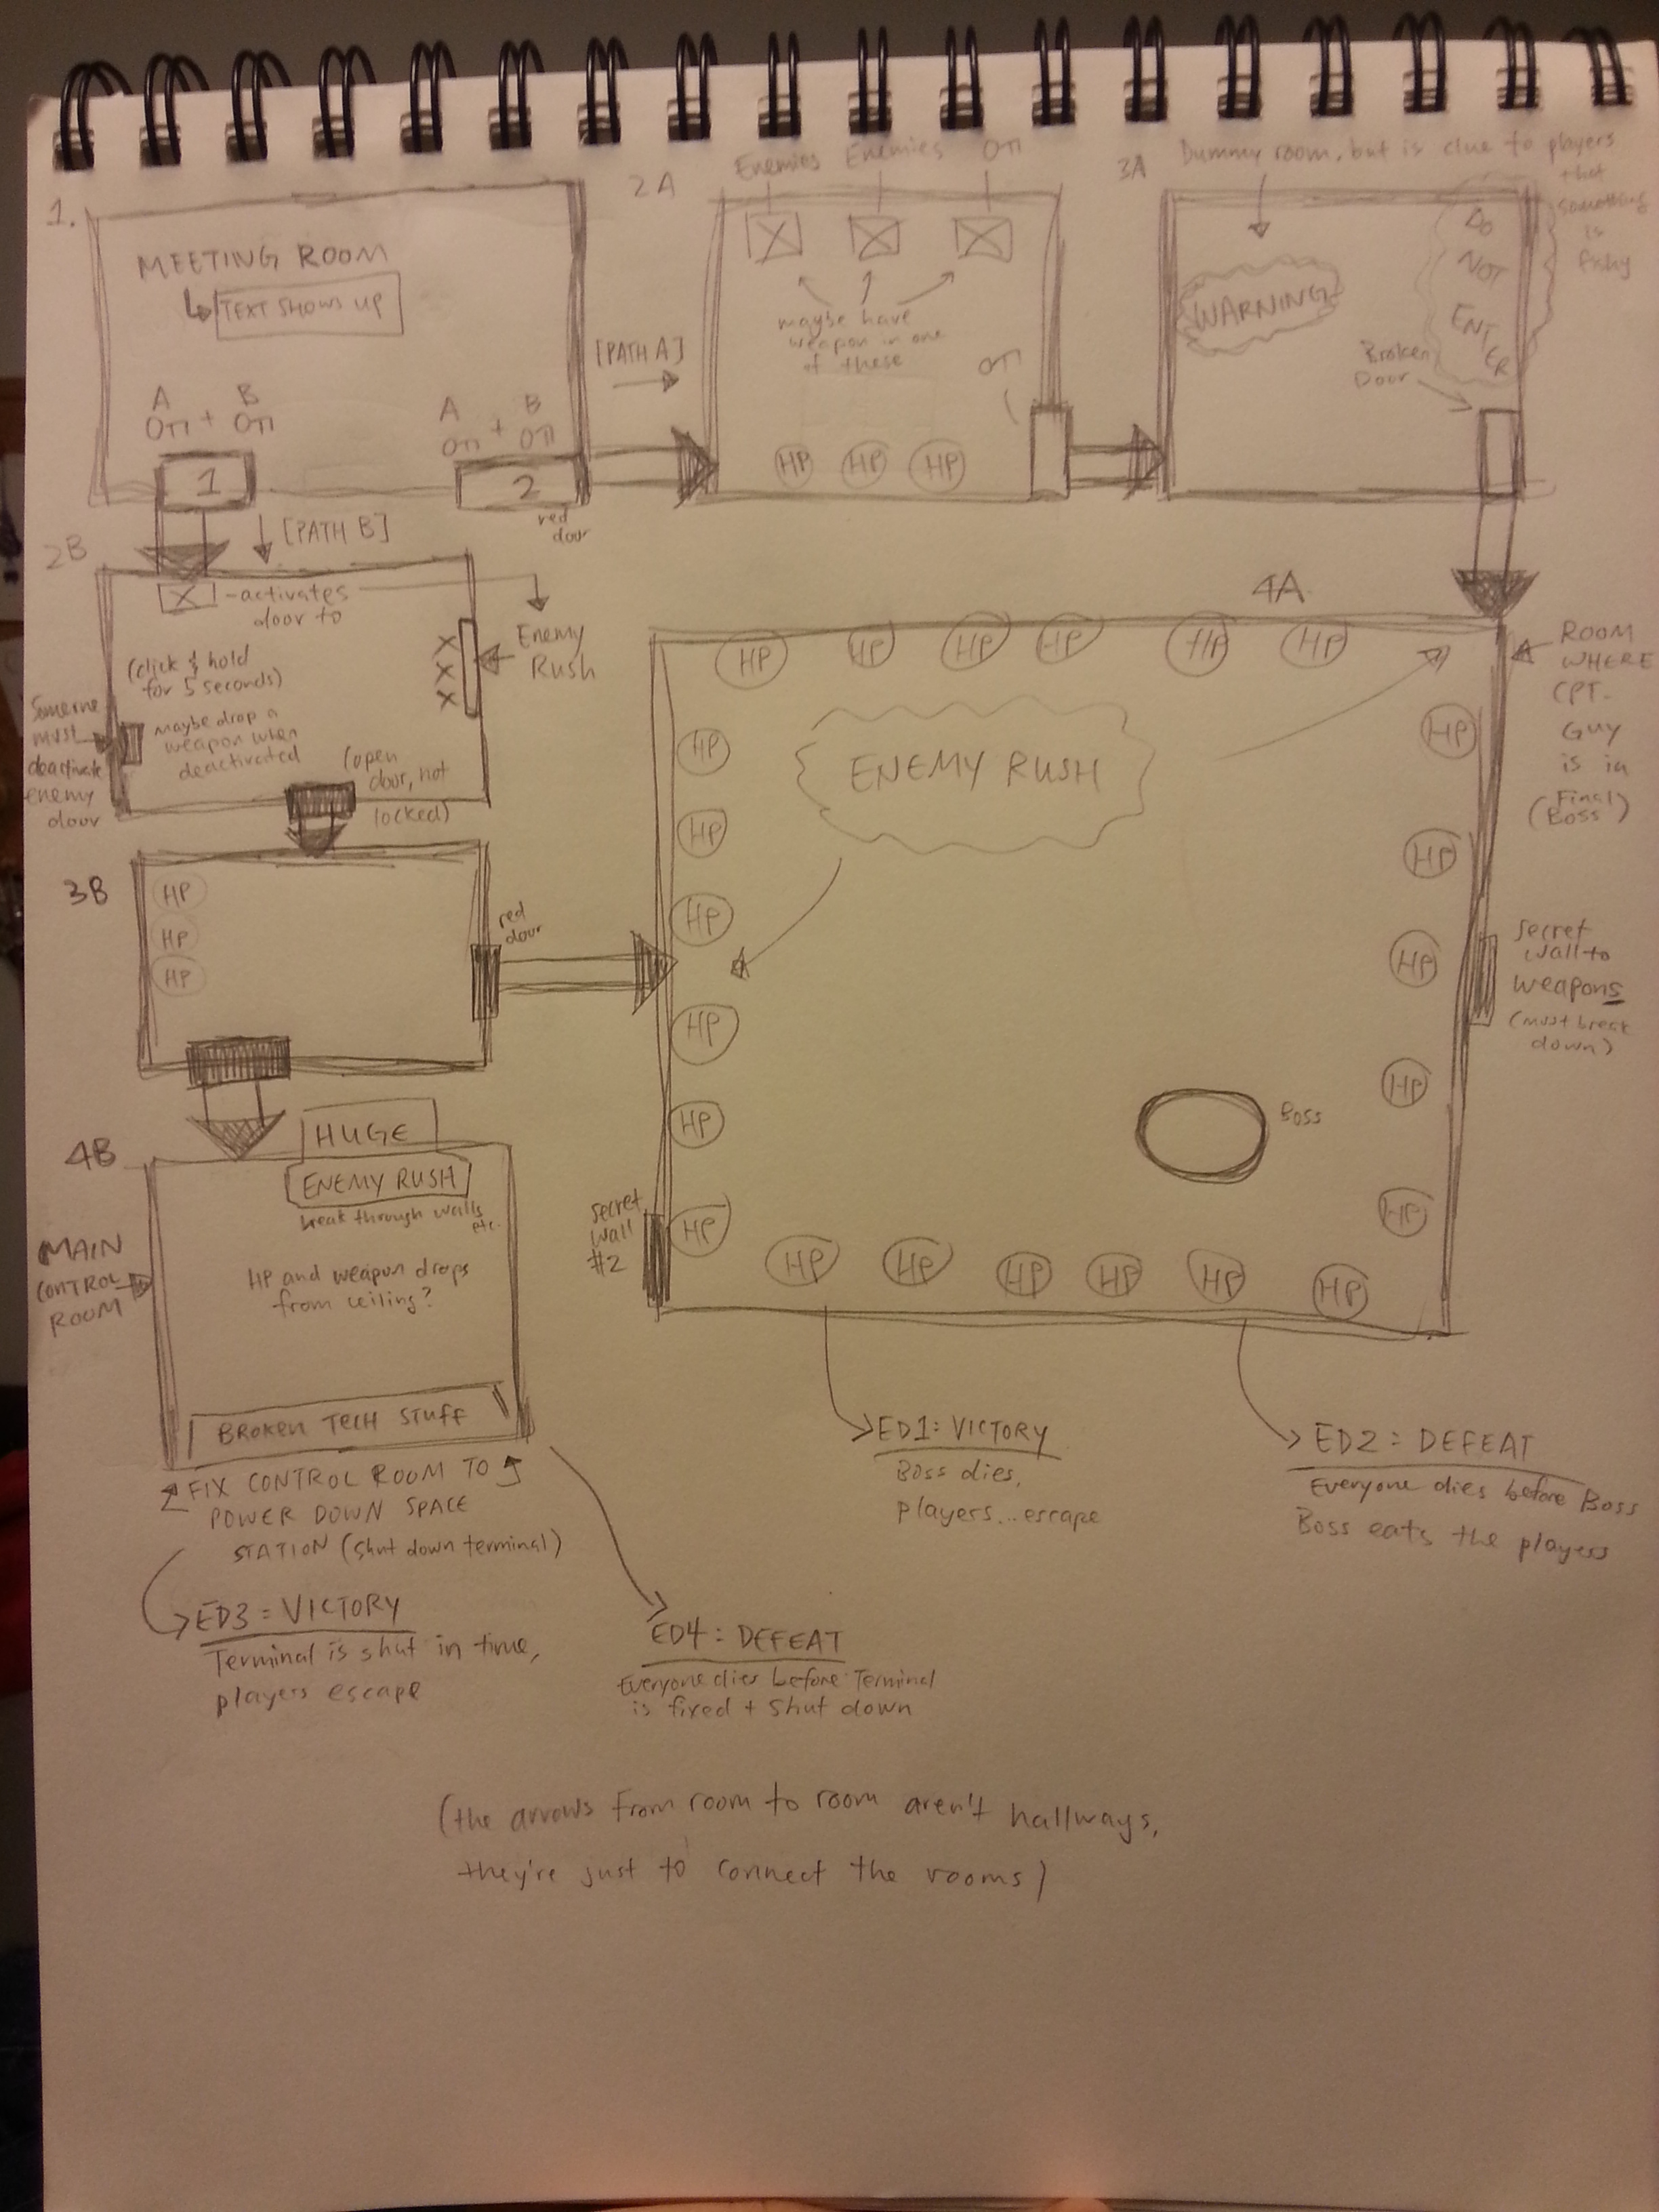 1.
MEETING ROOM
TEXT SHOWS UP
A B
+
A B
+
1
2
red
door
[PATH A]
[PATH B]
2A
Enemies Enemies
maybe have
weapon in one
of these
HP HP HP
3A
Dummy room, but is clue to players
that
something
is
fishy
WARNING
DO
NOT
ENTER
Broken
Door
2B
X -activates
door to
Enemy
Rush
X
X
X
(click & hold
for 5 seconds)
maybe drop a
weapon when
deactivated
Someone
must
deactivate
enemy
door
(open
door, not
locked)
3B
HP
HP
HP
red
door
4A
HP HP HP HP HP HP
ENEMY RUSH
ROOM
WHERE
CPT.
GUY
is in
(Final
Boss)
HP
HP
HP
HP
HP
HP
HP
HP
HP
HP
HP
secret
wall to
weapons
(must break
down)
Boss
secret
wall
#2
HP HP HP HP HP HP
4B
HUGE
ENEMY RUSH
break through walls
etc.
HP and weapon drops
from ceiling?
MAIN
CONTROL
ROOM
BROKEN TECH STUFF
FIX CONTROL ROOM TO
POWER DOWN SPACE
STATION (shut down terminal)
ED1: VICTORY
Boss dies,
players... escape
ED2: DEFEAT
Everyone dies before Boss
Boss eats the players
ED3: VICTORY
Terminal is shut in time,
players escape
ED4: DEFEAT
Everyone dies before Terminal
is fixed + shut down
(the arrows from room to room aren't hallways,
they're just to connect the rooms)